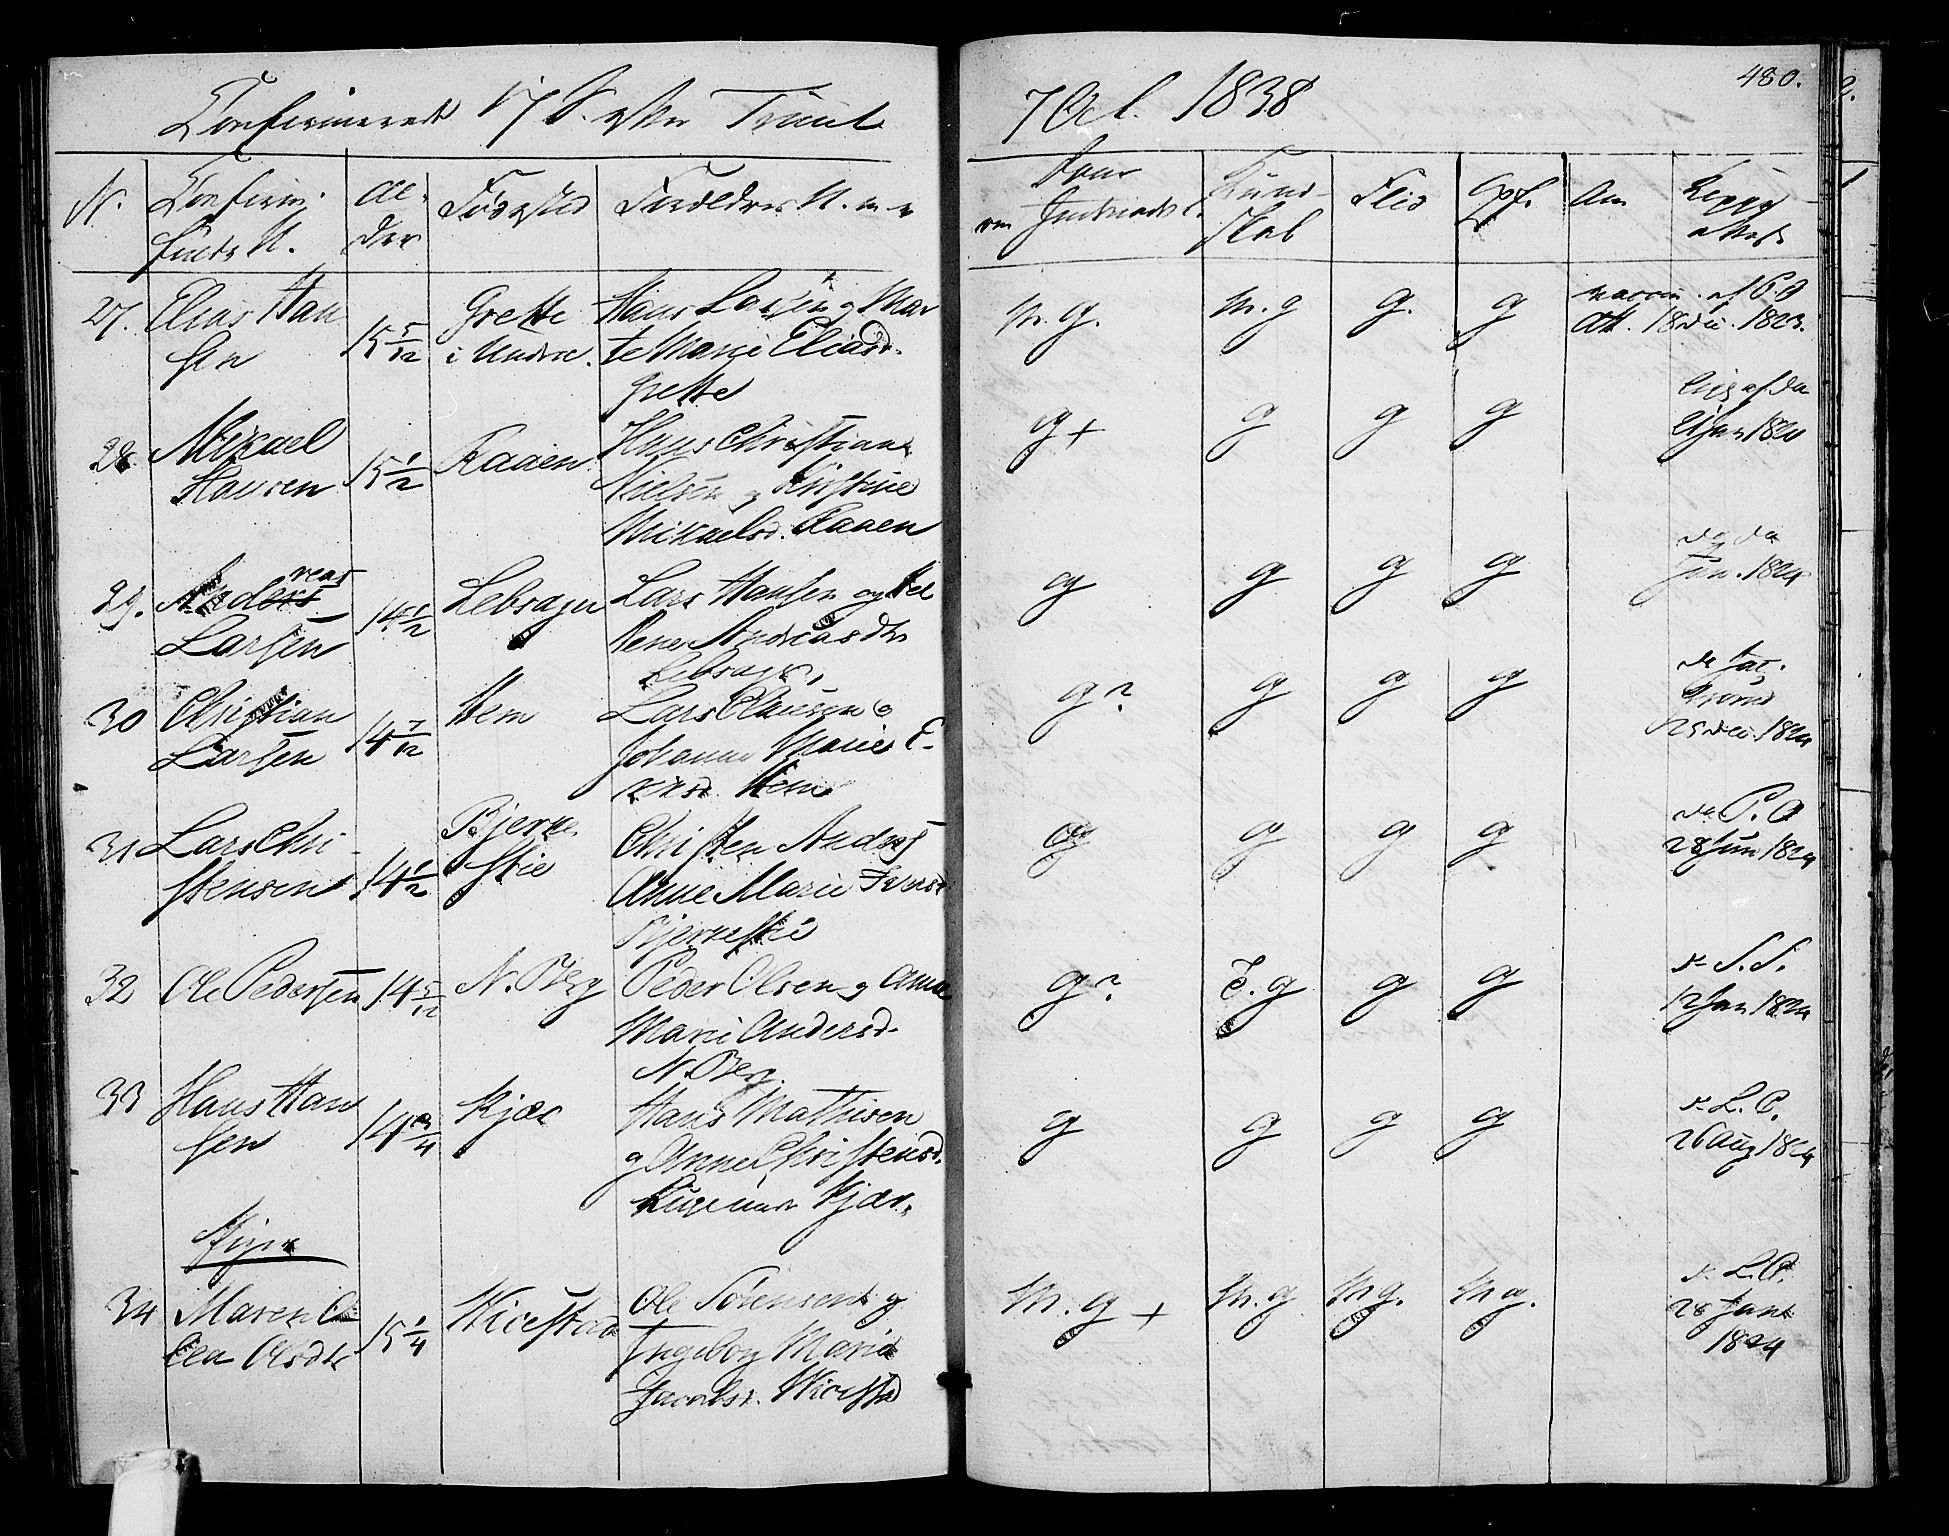 Confirmerede 17 S. efter Trinit
7 Oct. 1838
480.
N.
Confirm.
N.
Al-
der
Fødested
Forældres N.
Kund-
skab
Flid
Opf.
Anm
27. Elias Han
sen
15 5/12
Grette
i Undre.
Hans Larsen og Mar
te Marie Eliasd.
Grette
m. g.
m. g
g.
g
vaccin. af P.O
att. 18 Dec. 1823.
28. Mikael
Hansen
15 1/2
Raaen
Hans Christian
Nielsen og Kirstine
Mikaelsd. Raaen
g +
g
g
g
af do
Jan 1820
29. Anders
reas
Larsen
14 1/2
Lebsager
Lars Hansen og Hel
Andreasdtr
Lebsager
g
g
g
g
do do
Jun. 1824
30 Christian
Larsen
14 7/12
Hem
Lars Clausen o
Johanne Marie E-
Hem
g?
g
g
g
do Jac.
25 Dec. 1824
31 Lars Chri
stensen
14 1/2
Bjerke
stie
Christen Anders
Anne Marie Iversd
Bjerkestie
g
g
g
g
do P.O
28 Jun 1824
32 Ole Pedersen
14 5/12
N. Berg
Peder Olsen og Anne
Marie Andersd.
N. Berg
g?
T. g
g
g
S. S.
12 Jan 1824
33 Hans Han
sen
14 3/4
Kjær
Hans Mathisen
og Anne Christensd.
Kjær.
g
g
g
g
L. C.
26 Aug 1824
Piger
34 Maren O
lea Olsdtr
15 1/4
Wivestad
Ole Sørensen og
Ingeborg Marie
Jacobsd. Wivestad
m. g +
m. g
m g.
m g.
L. C.
28 Jan
1824